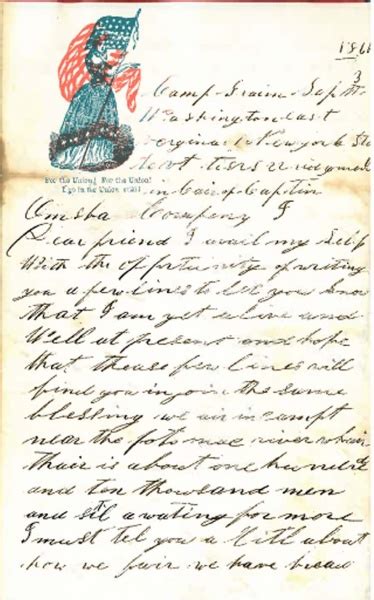 1861
Camp Sept 3
Washington East
Virginia New york
in Cair of Captin
For the Union! For the Union!
I go in the Union
Company I
Dear friend I avail my Self
With the opportunity of writing
you a few lines to let you know
that I am yet alive and
Well at present and hope
that thease few lines will
find you injoin the same
blessing we air in campt
near the potomac river whair
thair is about one hundred
and ten thousand men
and still awating for more
I must tel you a Litl about
how we fair we have bread